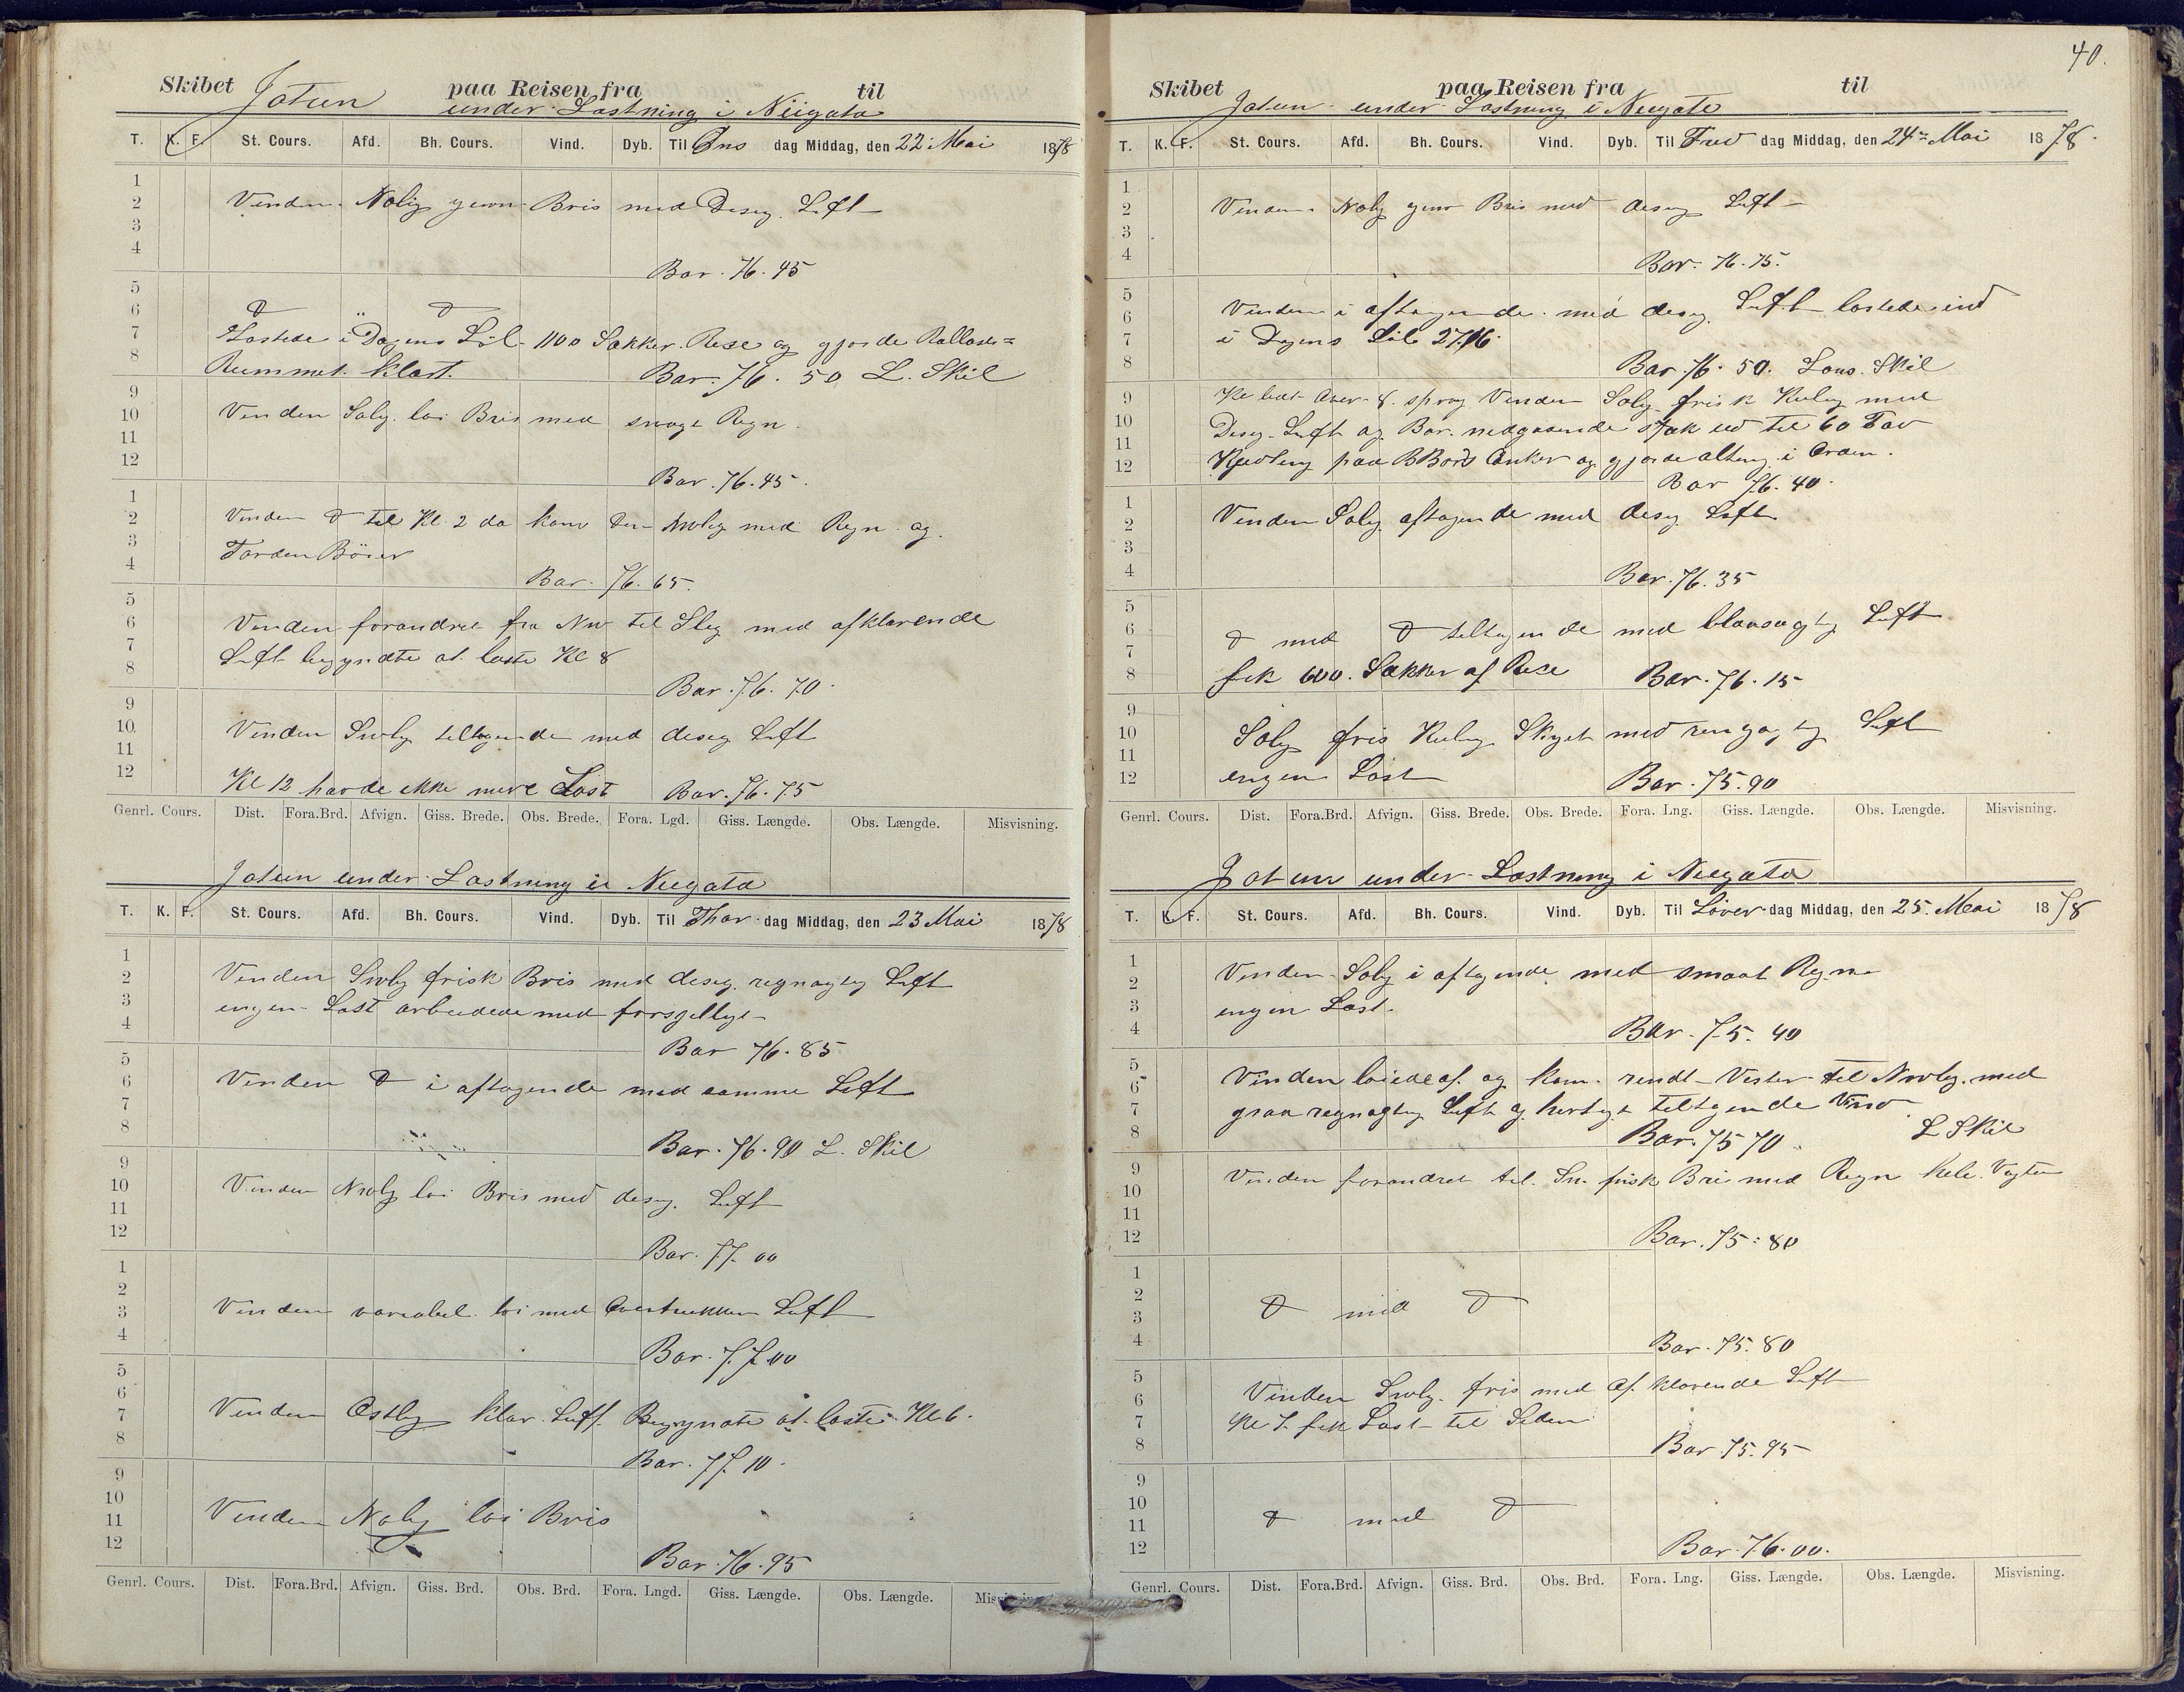 Skibet Jotun paa Reisen fra til
under Lastning i Niigata
T. K. F. St. Cours. Afd. Bh. Cours. Vind. Dyb. Til Ons dag Middag, den 22 Mai 1878
1
2 Vinden Nolig jevn Bris med Diseg. Luft
3
4 Bar. 76.45
5
6 D D
7 Lastede i Dagens Løb 1100 Sækker Rise og gjorde Ballast=
8 Rummet klart. Bar. 76.50 L. Skil
9
10 Vinden Solig. løi Bris med Regn.
11
12 Bar. 76.45.
1
2 Vinden D til Kl. 2 da kom den Nwlig med Regn og
3 Torden Böier
4 Bar. 76.65.
5
6 Vinden forandret fra NW til Slig med afklarende
7 Luft begyndte at laste Kl 8
8 Bar. 76.70.
9
10 Vinden Swlig tiltagende med diseg Luft
11
12 Kl 12 havde ikke mere Last Bar. 76.75
Genrl. Cours. Dist. Fora.Brd. Afvign. Giss. Brede. Obs. Brede. Fora. Lgd. Giss. Længde. Obs. Længde. Misvisning.
Jotun under Lastning i Niigata
T. K. F. St. Cours. Afd. Bh. Cours. Vind. Dyb. Til Thors dag Middag, den 23 Mai 1878
1
2 Vinden Swlig frisk Bris med diseg. regnagtig Luft
3 ingen Last arbeidede med forsjelligt
4 Bar 76.85
5
6 Vinden D i aftagende med samme Luft
7
8 Bar. 76.90 L. Skil
9
10 Vinden Nwlig løi Bris med diseg. Luft
11
12 Bar. 77.00
1
2
3 Vinden variabel løi med Overtrukken Luft
4 Bar. 77.00
5
6
7 Vinden Ostlig klar Luft. Begyndte at laste Kl 6.
8 Bar. 77.10.
9
10
11 Vinden Nolig løi Bris
12 Bar. 76.95
Genrl. Cours. Dist. Fora.Brd. Afvign. Giss. Brd. Obs. Brd. Fora. Lngd. Giss. Længde. Obs. Længde.
40.
Skibet paa Reisen fra til
Jotun under Lastning i Niigata
T. K. F. St. Cours. Afd. Bh. Cours. Vind. Dyb. Til Fre dag Middag, den 24 Mai 1878.
1
2 Vinden Nolig jevn Bris med diseg Luft
3
4 Bar. 76.75.
5
6 Vinden i aftagende med diseg. Luft lastede ind
7 i Dagens Löb 2716.
8 Bar 76.50. Lans. Skil
9 Kl lidt over 8 sprog Vinden Solig frisk Kuling med
10 Diseg. Luft og Bar. nedgaaende stak ud til 60 Fav
11
12 Kjædling paa BBords Anker og gjorde alting i Orden.
Bar 76.40.
1
2 Vinden Solig aftagende med diseg Luft
3
4 Bar. 76.35
5
6 D med D tiltagende med Luft
7
8 fik 600. Sækker af Rise Bar. 76.15
9
10 Solig fris Kuling Skyet med regnagtig Luft
11
12 ingen Last Bar. 75.90
Genrl. Cours. Dist. Fora.Brd. Afvign. Giss. Brede. Obs. Brede. Fora. Lng. Giss. Længde. Obs. Længde. Misvisning.
Jotun under Lastning i Niigata
T. K. F. St. Cours. Afd. Bh. Cours. Vind. Dyb. Til Löver dag Middag, den 25. Mai 1878
1
2 Vinden Solig i aftagende med smaat Regn
3 ingen Last.
4 Bar. 75.40
5
6 Vinden løiede af. og kom rundt Vester til Nwlig. med
7 graa regnagtig Luft og hurtigt tiltagende Vind
8 Bar. 75 70. L Skil
9 Vinden forandret til Sw. frisk Bris med Regn hele Vagten
10
11
12 Bar. 75.80
1
2
3 D med D
4 Bar. 75.80
5
6 Vinden Swlig. fris med af klarende Luft
7 Kl 7 fik Last til Siden
8 Bar 75.95
9
10
11 D med D
12 Bar. 76.00.
Genrl. Cours. Dist. Fora.Brd. Afvign. Giss. Brd. Obs. Brd. Fora. Lng. Giss. Længde. Obs. Længde. Misvisning.